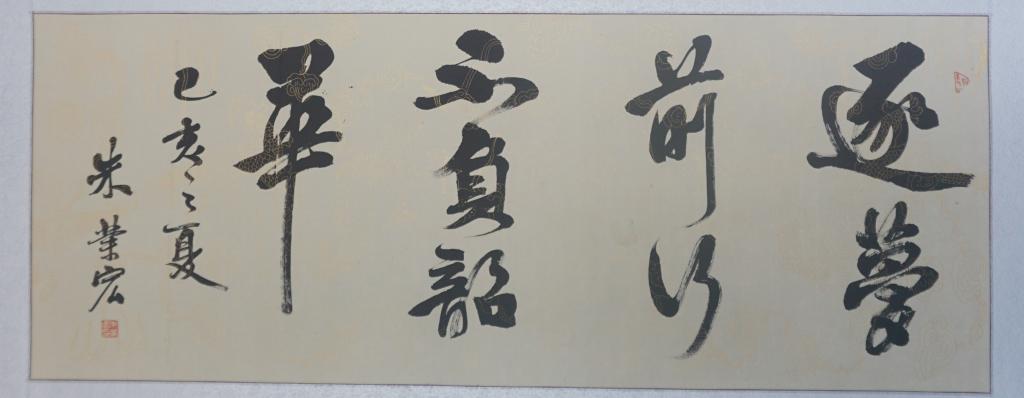 逐夢
前行
不負韶
華
己亥之夏
朱業宏